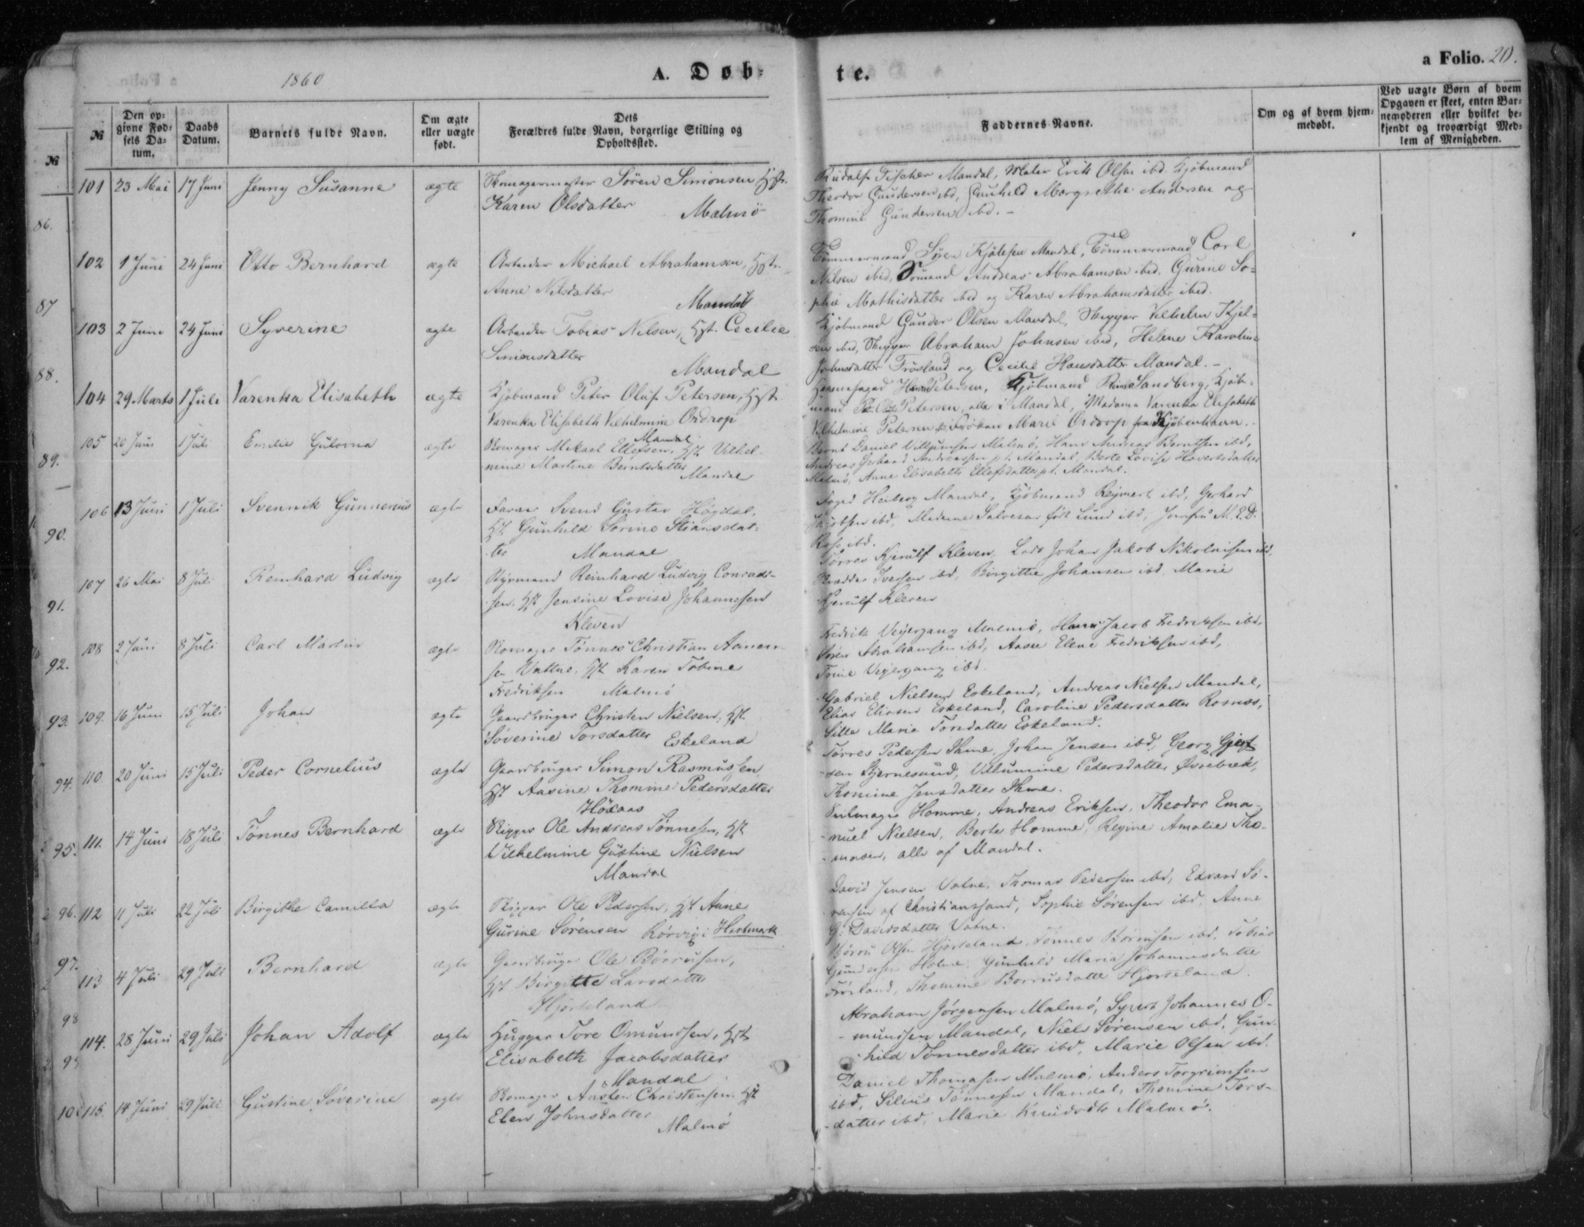 1860
A. Døb-
te.
a Folio. 20.
№
Den op-
givne Fød-
sels Da-
tum.
Daabs
Datum.
Barnets fulde Navn.
Om ægte
eller uægte
født.
Dets
Forældres fulde Navn, borgerlige Stilling og
Opholdssted.
Faddernes Navne.
Om og af hvem hjem-
medøbt.
Ved uægte Børn af hvem
Opgaven er skeet, enten Bar-
nemoderen eller hvilket be-
kjendt og troværdigt Med-
lem af Menigheden.
№
86.
87
88.
89.
90.
91.
92.
93.
94.
95.
96.
97.
98
101 23 Mai 17 Juni Jenny Susanne ægte Skomagermester Søren Simonsen, Hst.
Karen Olsdatter Malmø
Rudolf Fischer Mandal, Maler Erik Olsen ibd. Kjøbmand
Theodor Gundersen ibd, Gunhild Margrethe Andersen og
Thomine Gundersen ibd.
102 1 Juni 24 Juni Otto Bernhard ægte Arbeider Michael Abrahamsen, Hst.
Anne Nilsdatter
Mandal
Tømmermand Søren Kjølesen Mandal, Tømmermand Carl
Nilsen ibd, Sømand Andreas Abrahamsen ibd. Gurine So-
phie Mathisdatter ibd og Karen Abrahamsdatter ibid.
103 2 Juni 24 Juni Syverine ægte Arbeider Tobias Nilsen, Hst. Cecilie
Simonsdatter
Mandal
Kjøbmand Gunder Olsen Mandal, Skipper Vilhelm Kjøl-
sen ibd, Skipper Abraham Johnsen ibd, Helene Karoline
Johnsdatter Frøsland og Cecilie Hansdatter Mandal.
104 29 Marts 1 Juli Varenka Elisabeth ægte Kjøbmand Peter Oluf Petersen, Hst.
Varenka Elisabeth Vilhelmine Ordrop
Mandal
Petersen, Kjøbmand Sandberg, Kjøb-
mand Petersen, alle i Mandal, Madame Varenka Elisabeth
Vilhelmine Petersen, Frøken Marie Ordrop fra Kjøbenhavn.
105 20 Juni 1 Juli Emilie Gulovna ægte Romager Mikael Ellefsen, Hst Vilhel-
mine Martine Berntsdatter
Mandal
Bernt Daniel Villumsen Malmø, Hans Andreas Berntsen ibd,
Andreas Johand Andreassen pt. Mandal, Berte Lovise Haverstsdatter
Malmø, Anne Elisabeth Ellefsdatter pt. Mandal.
106 13 Juni 1 Juli Svennik Gunnerius ægte Farver Svend Gustav Høgdal,
Hst Gunhild Serine Stiansdat-
ter Mandal
Foged Heiberg Mandal, Kjøbmand Reymert ibd, Gerhard
ibd, Madame Salvesen født Lund ibd, Jomfru M. E. D.
Rose ibd.
107 26 Mai 8 Juli Reinhard Ludvig ægte Styrmand Reinhard Ludvig Conrad-
sen, Hst Jensine Lovise Johannesen
Kleven
Tørres Gjerulf Kleven, Lods Johan Jakob Nikolaisen ibd,
Iversen ibd, Birgitte Johansen ibd. Marie
Gjerulf Kleven
108 2 Juni 8 Juli Carl Martin ægte Romager Tønnes Christian Aanen-
sen Vattne, Hst Karen Tobine
Fredriksen Malmø
Fedrik Veiergang Malmø, Hans Jacob Fredriksen ibd.
Søren Abrahamsen ibd, Aasne Elene Fredriksen ibd,
Trine Veiergang ibd.
109. 16 Juni 15 Juli Johan ægte Gaardbruger Christen Nielsen, Hst.
Søverine Torsdatter Eskeland
Gabriel Nielsen Eskeland, Andreas Nielsen Mandal,
Elias Eliasen Eskeland, Caroline Pedersdatter Rosnes,
Sille Maria Torsdatter Eskeland.
110 20 Juni 15 Juli Peder Cornelius ægte Gaardbruger Simon Rasmussen
Hst Aasine Thomine Pedersdatter
Tørres Pedersen Skime, Johan Jensen ibd, Georg
Villumine Pedersdatter Øvrebrek,
Thomine Jensdatter Skime.
111. 14 Juni 18 Juli Tønnes Bernhard ægte Skipper Ole Andreas Tønnesen, Hst
Vilhelmine Gustine Nielsen
Mandal
Homme, Andreas Eriksen, Theodor Ema-
nuel Nielsen, Berte Homme, Regine Amalie Tho-
massen, alle af Mandal.
112 11 Juli 22 Juli Birgithe Camilla ægte Skipper Ole Pedersen, Hst Anne
Gurine Sørensen Rørvig i Hartmark
David Jensen Vatne, Thomas Pedersen ibd, Edvard Sø-
rensen af Christianssand, Sophie Sørensen ibd, Anne
G. Davidsdatter Vatne.
113 4 Juli 29 Juli Bernhard ægte Gaardbruger Ole Børresen,
Hst Birgitte Larsdatter
Hjorteland
Børre Olsen Hjorteland, Tønnes Børresen ibd. Tobias
Gundersen Holme. Gunhild Maria Johannesdatter
Frøsland, Thomine Børresdatter Hjorteland.
114. 28 Juni 29 Juli Johan Adolf ægte Hugger Tore Omundsen, Hst
Elisabeth Jacobsdatter
Mandal
Abraham Jørgensen Malmø, Sypert Johannes O-
mundsen Mandal, Niels Sørensen ibd, Gun-
hild Tønnesdatter ibd, Marie Olsen ibd.
115. 14 Juni 29 Juli Gustine Søverine ægte Romager Aasten Christensen, Hst
Elen Johnsdatter
Malmø
Daniel Thomasen Malmø, Anders Torgrimsen
ibd, Selius Tønnesen Mandal, Thomine Tors-
datter ibd, Marie Knudsdtr Malmø.